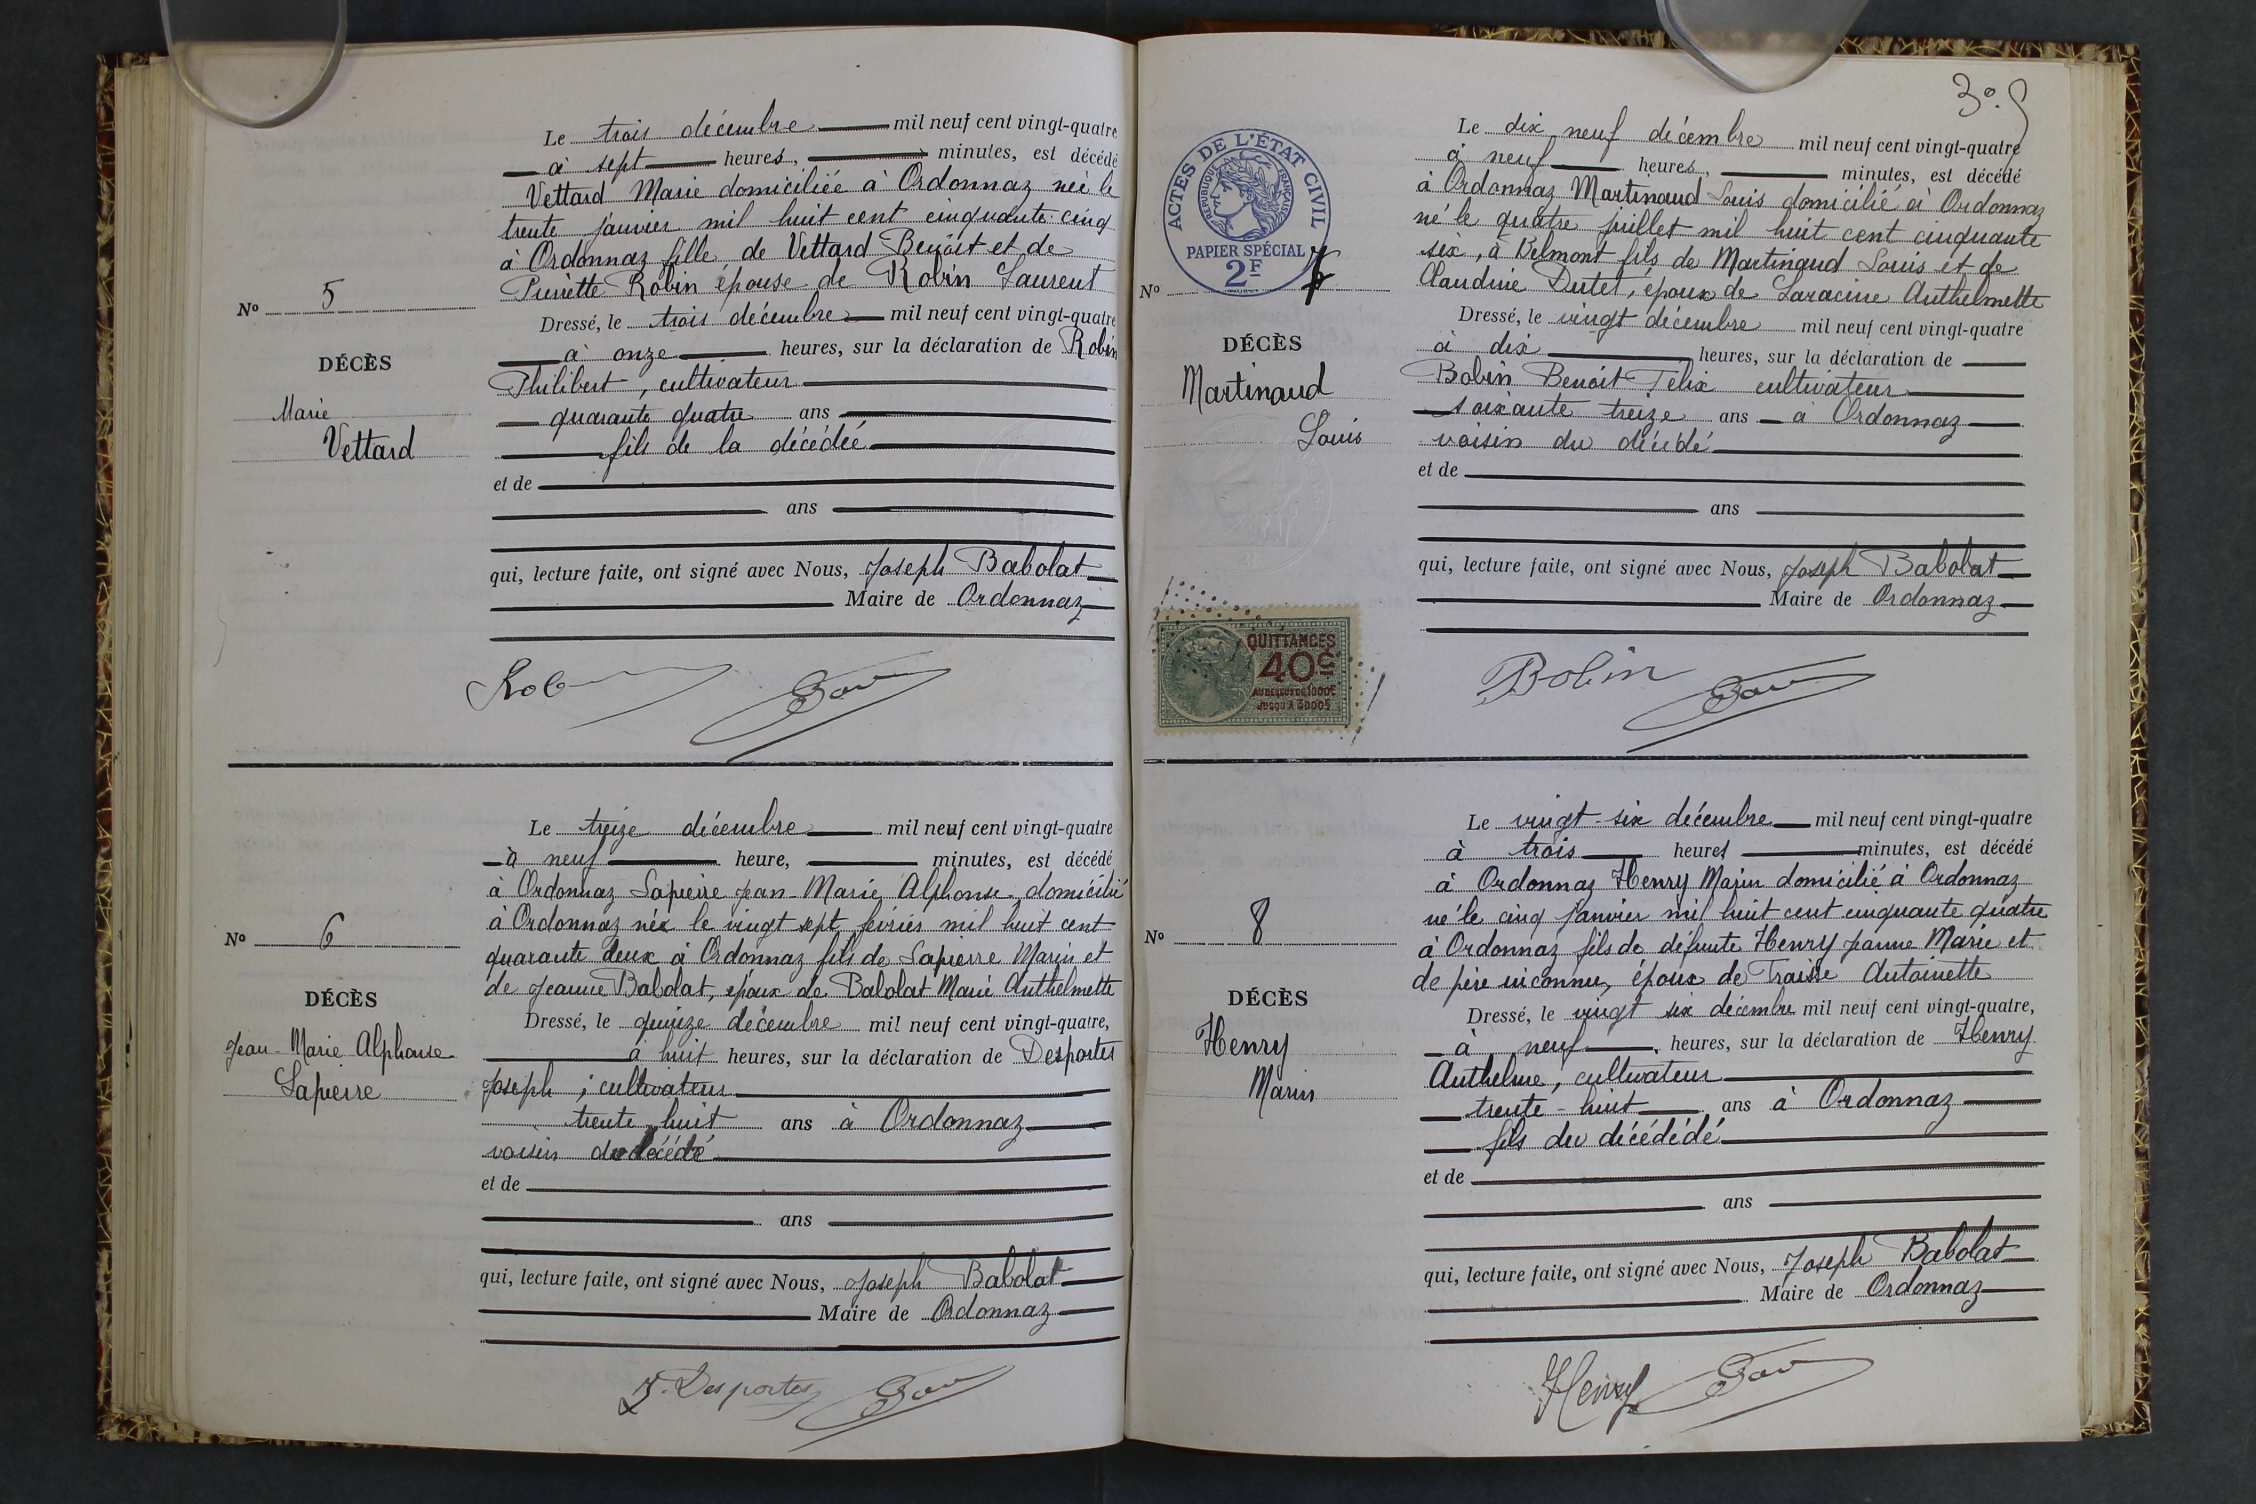 Le trois décembre mil neuf cent vingt-quatre
à sept heures, minutes, est décédé
Vettard Marie domiciliée à Ordonnaz née le
trente janvier mil huit cent cinquante cinq
à Ordonnaz fille de Vettard Benoit et de
Pierrette Robin épouse de Robin Laurent
No 5
Dressé, le trois décembre mil neuf cent vingt-quatre
à onze heures, sur la déclaration de Robin
DÉCÈS
Philibert, cultivateur
Marie
quarante quatre ans
Vettard
fils de la décédée
et de
ans
qui, lecture faite, ont signé avec Nous, Joseph Babolat
Maire de Ordonnaz
Le treize décembre mil neuf cent vingt-quatre
à neuf heure, minutes, est décédé
à Ordonnaz Lapierre Jean-Marie Alphonse domicilié
à Ordonnaz né le vingt sept février mil huit cent
No 6
quarante deux à Ordonnaz fils de Lapierre Marin et
de Jeanne Babolat, époux de Babolat Marie Anthelmette
DÉCÈS
Dressé, le quinze décembre mil neuf cent vingt-quatre,
Jean-Marie Alphonse
à huit heures, sur la déclaration de Desportes
Lapierre
Joseph, cultivateur
trente huit ans à Ordonnaz
voisin du décédé
et de
ans
qui, lecture faite, ont signé avec Nous, Joseph Babolat
Maire de Ordonnaz
J. Desportes
3
Le dix neuf décembre mil neuf cent vingt-quatre
à neuf heures, minutes, est décédé
à Ordonnaz Martinaud Louis domicilié à Ordonnaz
né le quatre juillet mil huit cent cinquante
six, à Belmont fils de Martinaud Louis et de
Claudine Dutel, époux de Laracine Anthelmette
ACTES DE L'ÉTAT CIVIL
RÉPUBLIQUE FRANÇAISE
PAPIER SPÉCIAL
2F
No 7
DÉCÈS
Martinaud
Louis
Dressé, le vingt décembre mil neuf cent vingt-quatre
à dix heures, sur la déclaration de
Bobin Benoit Félix cultivateur
soixante treize ans à Ordonnaz
voisin du décédé
et de
ans
qui, lecture faite, ont signé avec Nous, Joseph Babolat
Maire de Ordonnaz
QUITTANCES
40c
AU DESSUS DE 1000F
JUSQU'À 3000F
Bobin
Le vingt-six décembre mil neuf cent vingt-quatre
à trois heures minutes, est décédé
à Ordonnaz Henry Marin domicilié à Ordonnaz
né le cinq janvier mil huit cent cinquante quatre
No 8
à Ordonnaz fils de défunte Henry Jeanne Marie et
de père inconnu, époux de Traisse Antoinette
DÉCÈS
Dressé, le vingt six décembre mil neuf cent vingt-quatre,
Henry
à neuf heures, sur la déclaration de Henry
Marin
Anthelme, cultivateur
trente-huit ans à Ordonnaz
fils du décédédé
et de
ans
qui, lecture faite, ont signé avec Nous, Joseph Babolat
Maire de Ordonnaz
Henry